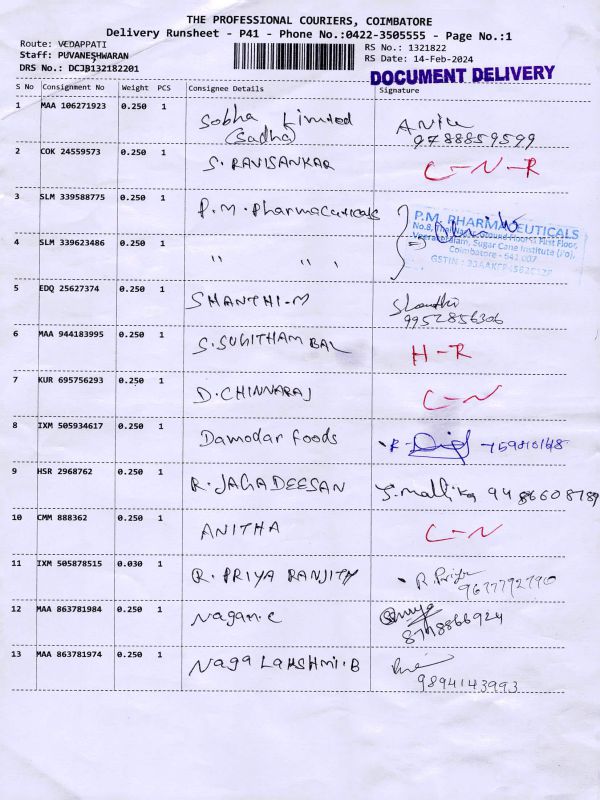 THE PROFESSIONAL COURIERS, COIMBATORE
Delivery Runsheet - P41 - Phone No.:0422-3505555 - Page No.:1
Route: VEDAPPATI
Staff: PUVANESHWARAN
DRS No.: DCJB132182201
RS No.: 1321822
RS Date: 14-Feb-2024
DOCUMENT DELIVERY
S No Consignment No Weight PCS Consignee Details Signature
1 MAA 106271923 0.250 1 Sobha Limited
(Sadha)
Anitu
9788859599
2 COK 24559573 0.250 1 S. RAVISANKAR C-N-R
3 SLM 339588775 0.250 1 P.M. Pharmaceuticals
P.M. PHARMACEUTICALS
Sugar Cane Institute (Po),
Coimbatore - 641 007
4 SLM 339623486 0.250 1 " " '
5 EDQ 25627374 0.250 1 SHANTHI-M Shanthi
9952856306
6 MAA 944183995 0.250 1 S. SUGITHAM BAL H-R
7 KUR 695756293 0.250 1 D. CHINNARAJ C-N
8 IXM 505934617 0.250 1 Damodar Foods
9 HSR 2968762 0.250 1 R. JAGADEESAN J. mallika 9486608789
10 CMM 888362 0.250 1 ANITHA C-N
11 IXM 505878515 0.030 1 R. PRIYA RANJITH R Priya
9677792790
12 MAA 863781984 0.250 1 Nagam.C
8778866924
13 MAA 863781974 0.250 1 Naga Lakshmi.B
9894143993